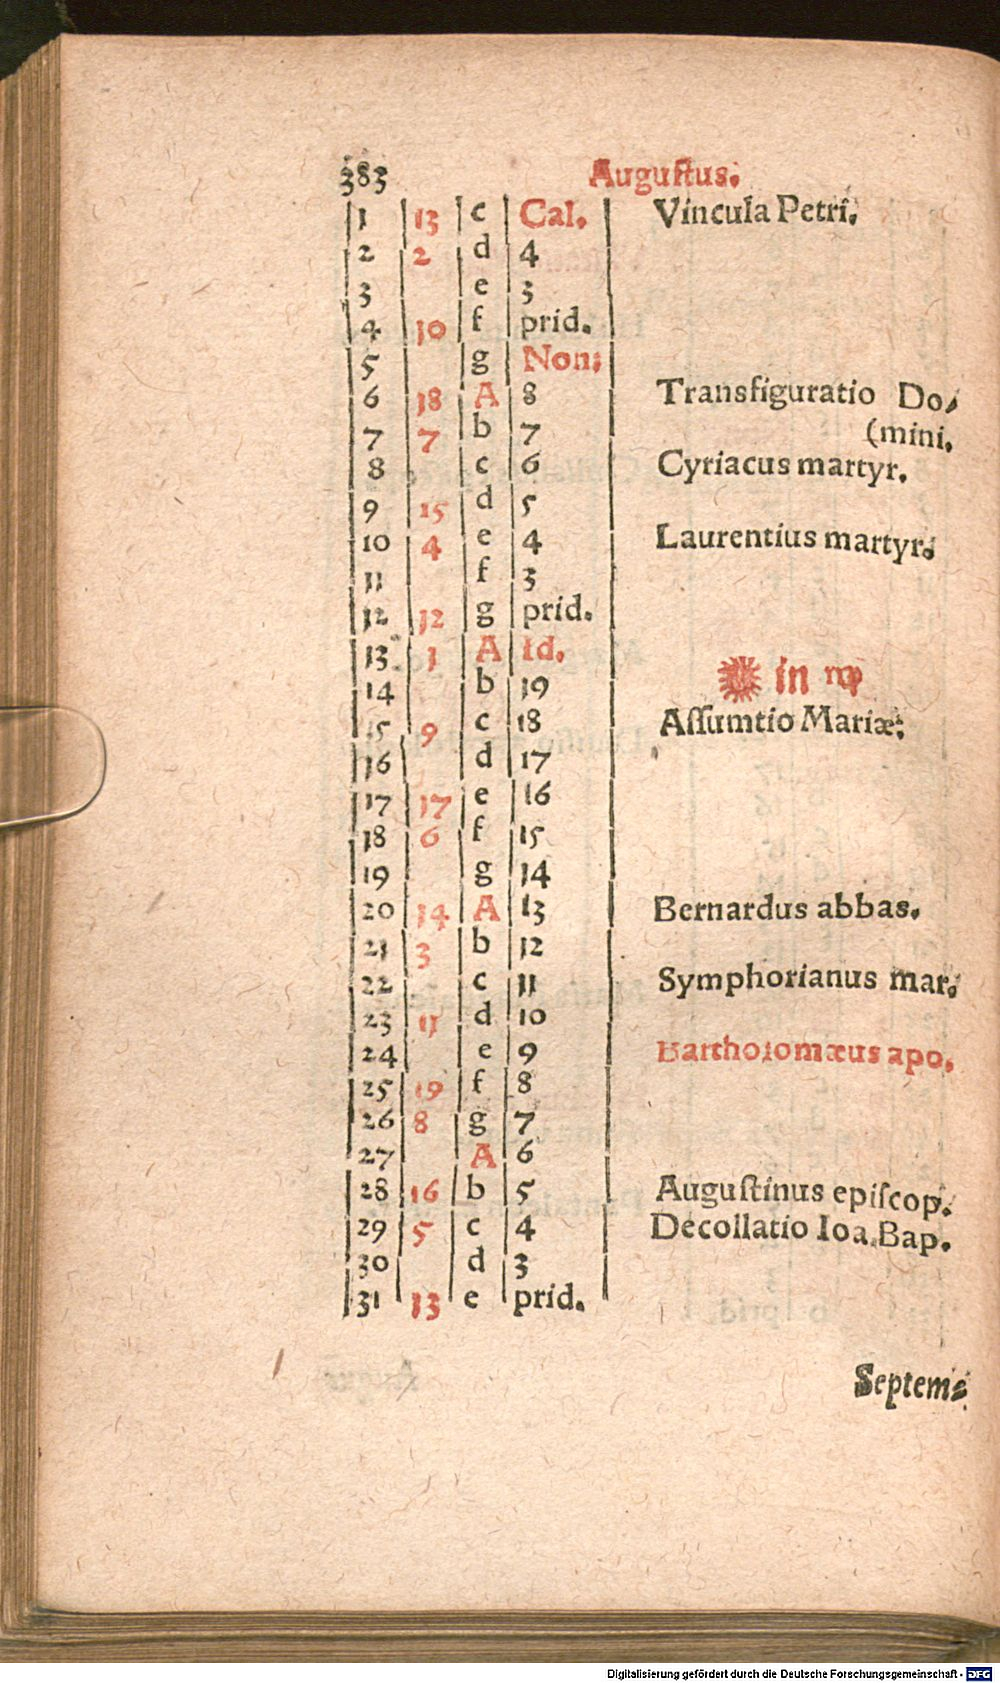 383 Auguſtus.
1 13 c Cal. Vincula Petri.
2 2 d 4
3 e 3
4 10 f prid.
5 g Non:
6 18 A 8 Transfiguratio Do/
7 7 b 7 (mini.
8 c 6 Cyriacus martyr.
9 15 d 5
10 4 e 4 Laurentius martyr.
11 f 3
12 12 g prid.
13 1 A Id.
14 b 19 ☉ in ♍
15 9 c 18 Aſſumtio Mariæ:
16 d 17
17 17 e 16
18 6 f 15
19 g 14
20 14 A 13 Bernardus abbas.
21 3 b 12
22 c 11 Symphorianus mar.
23 11 d 10
24 e 9 Bartholomæus apo.
25 19 f 8
26 8 g 7
27 A 6
28 16 b 5 Auguſtinus epiſcop.
29 5 c 4 Decollatio Ioa. Bap.
30 d 3
31 13 e prid.
Septem⸗
Digitalisierung gefördert durch die Deutsche Forschungsgemeinschaft - DFG